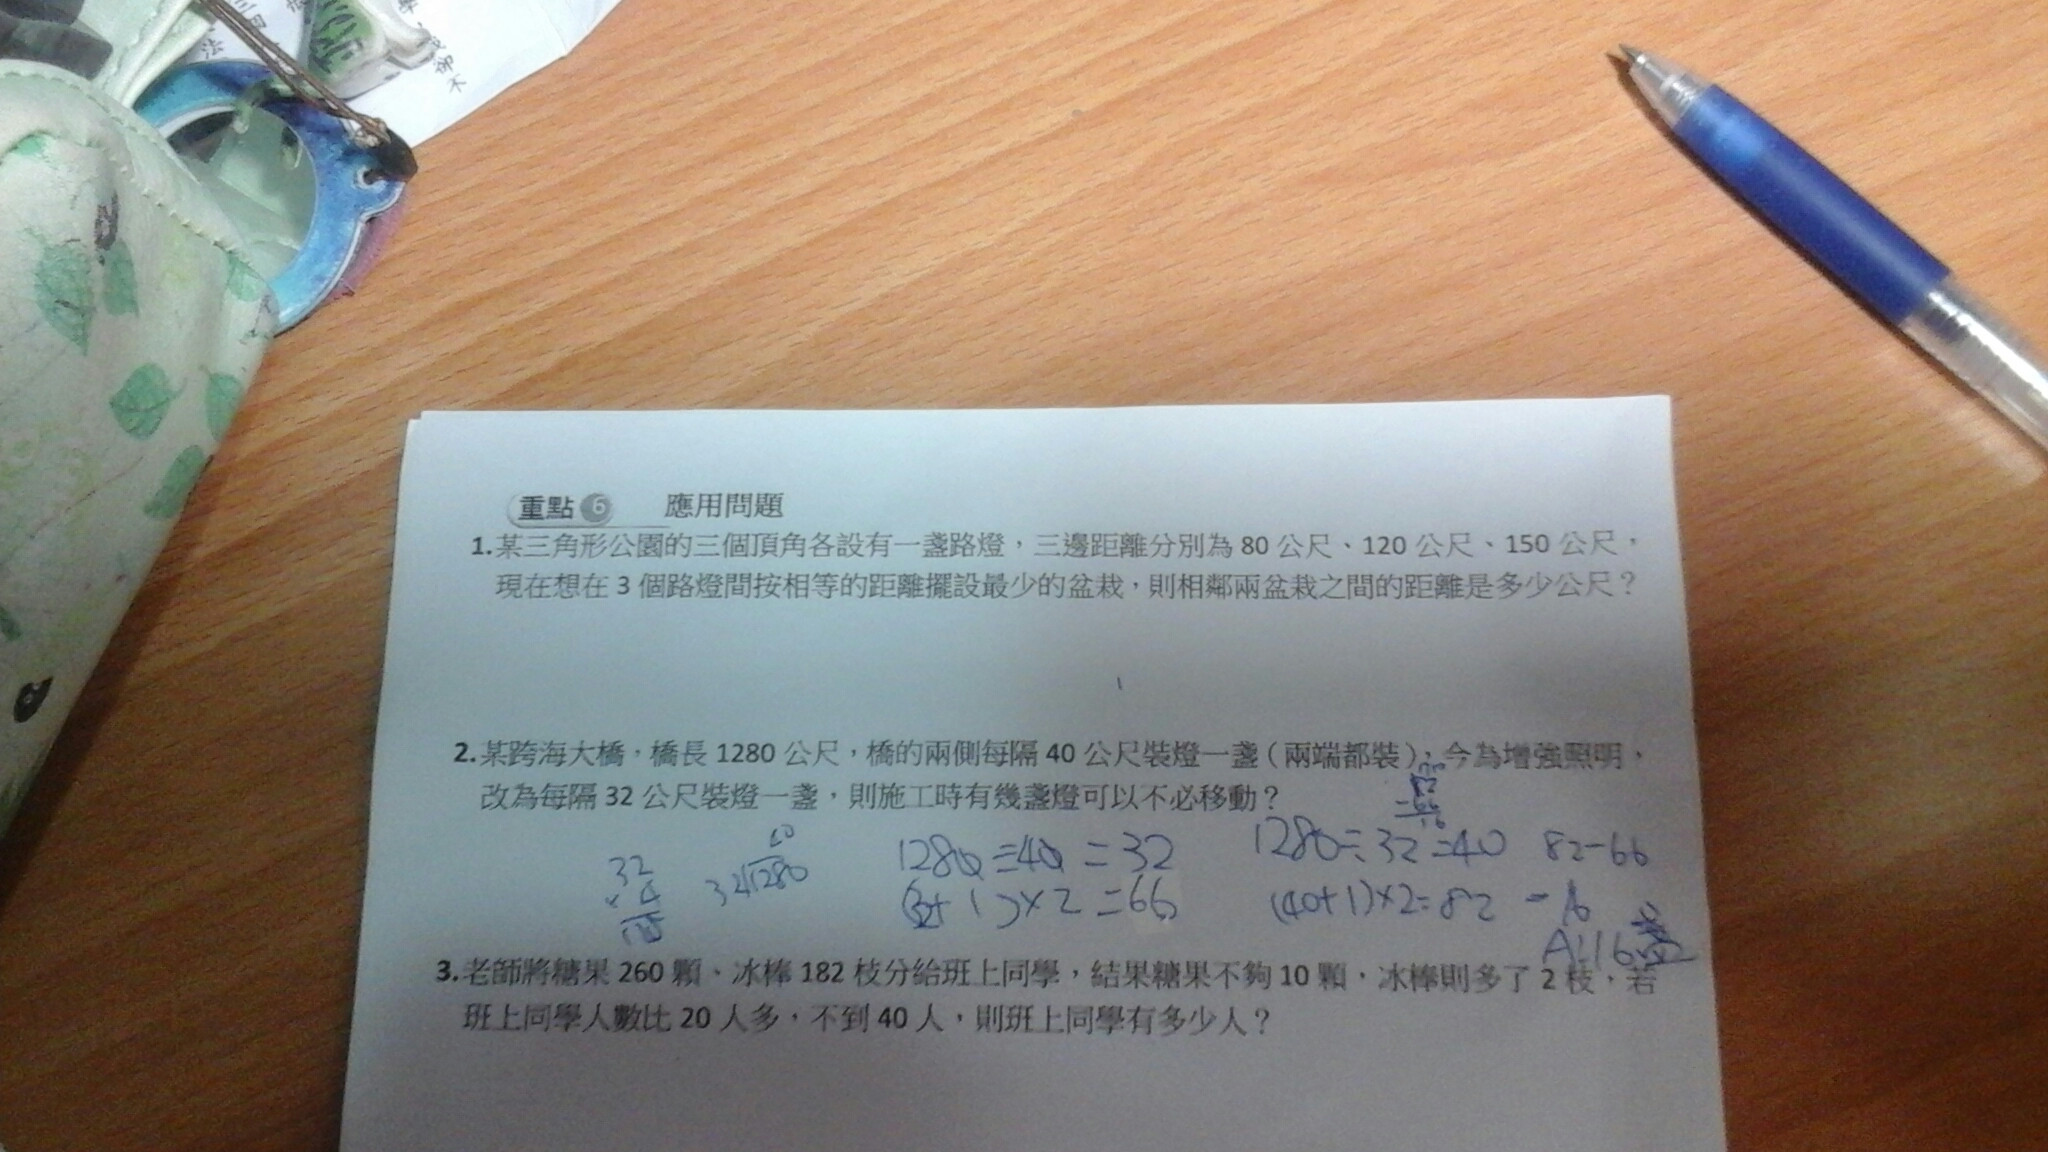 重點 6 應用問題
1.某三角形公園的三個頂角各設有一盞路燈，三邊距離分別為 80 公尺、120 公尺、150 公尺，
現在想在 3 個路燈間按相等的距離擺設最少的盆栽，則相鄰兩盆栽之間的距離是多少公尺？
2.某跨海大橋，橋長 1280 公尺，橋的兩側每隔 40 公尺裝燈一盞（兩端都裝），今為增強照明，
改為每隔 32 公尺裝燈一盞，則施工時有幾盞燈可以不必移動？
32
× 4
40
32 1280
1280÷40=32
(32+1)×2=66
1280÷32=40
(40+1)×2=82
82-66
=16
A:16盞
3.老師將糖果 260 顆、冰棒 182 枝分給班上同學，結果糖果不夠 10 顆，冰棒則多了 2 枝，若
班上同學人數比 20 人多，不到 40 人，則班上同學有多少人？